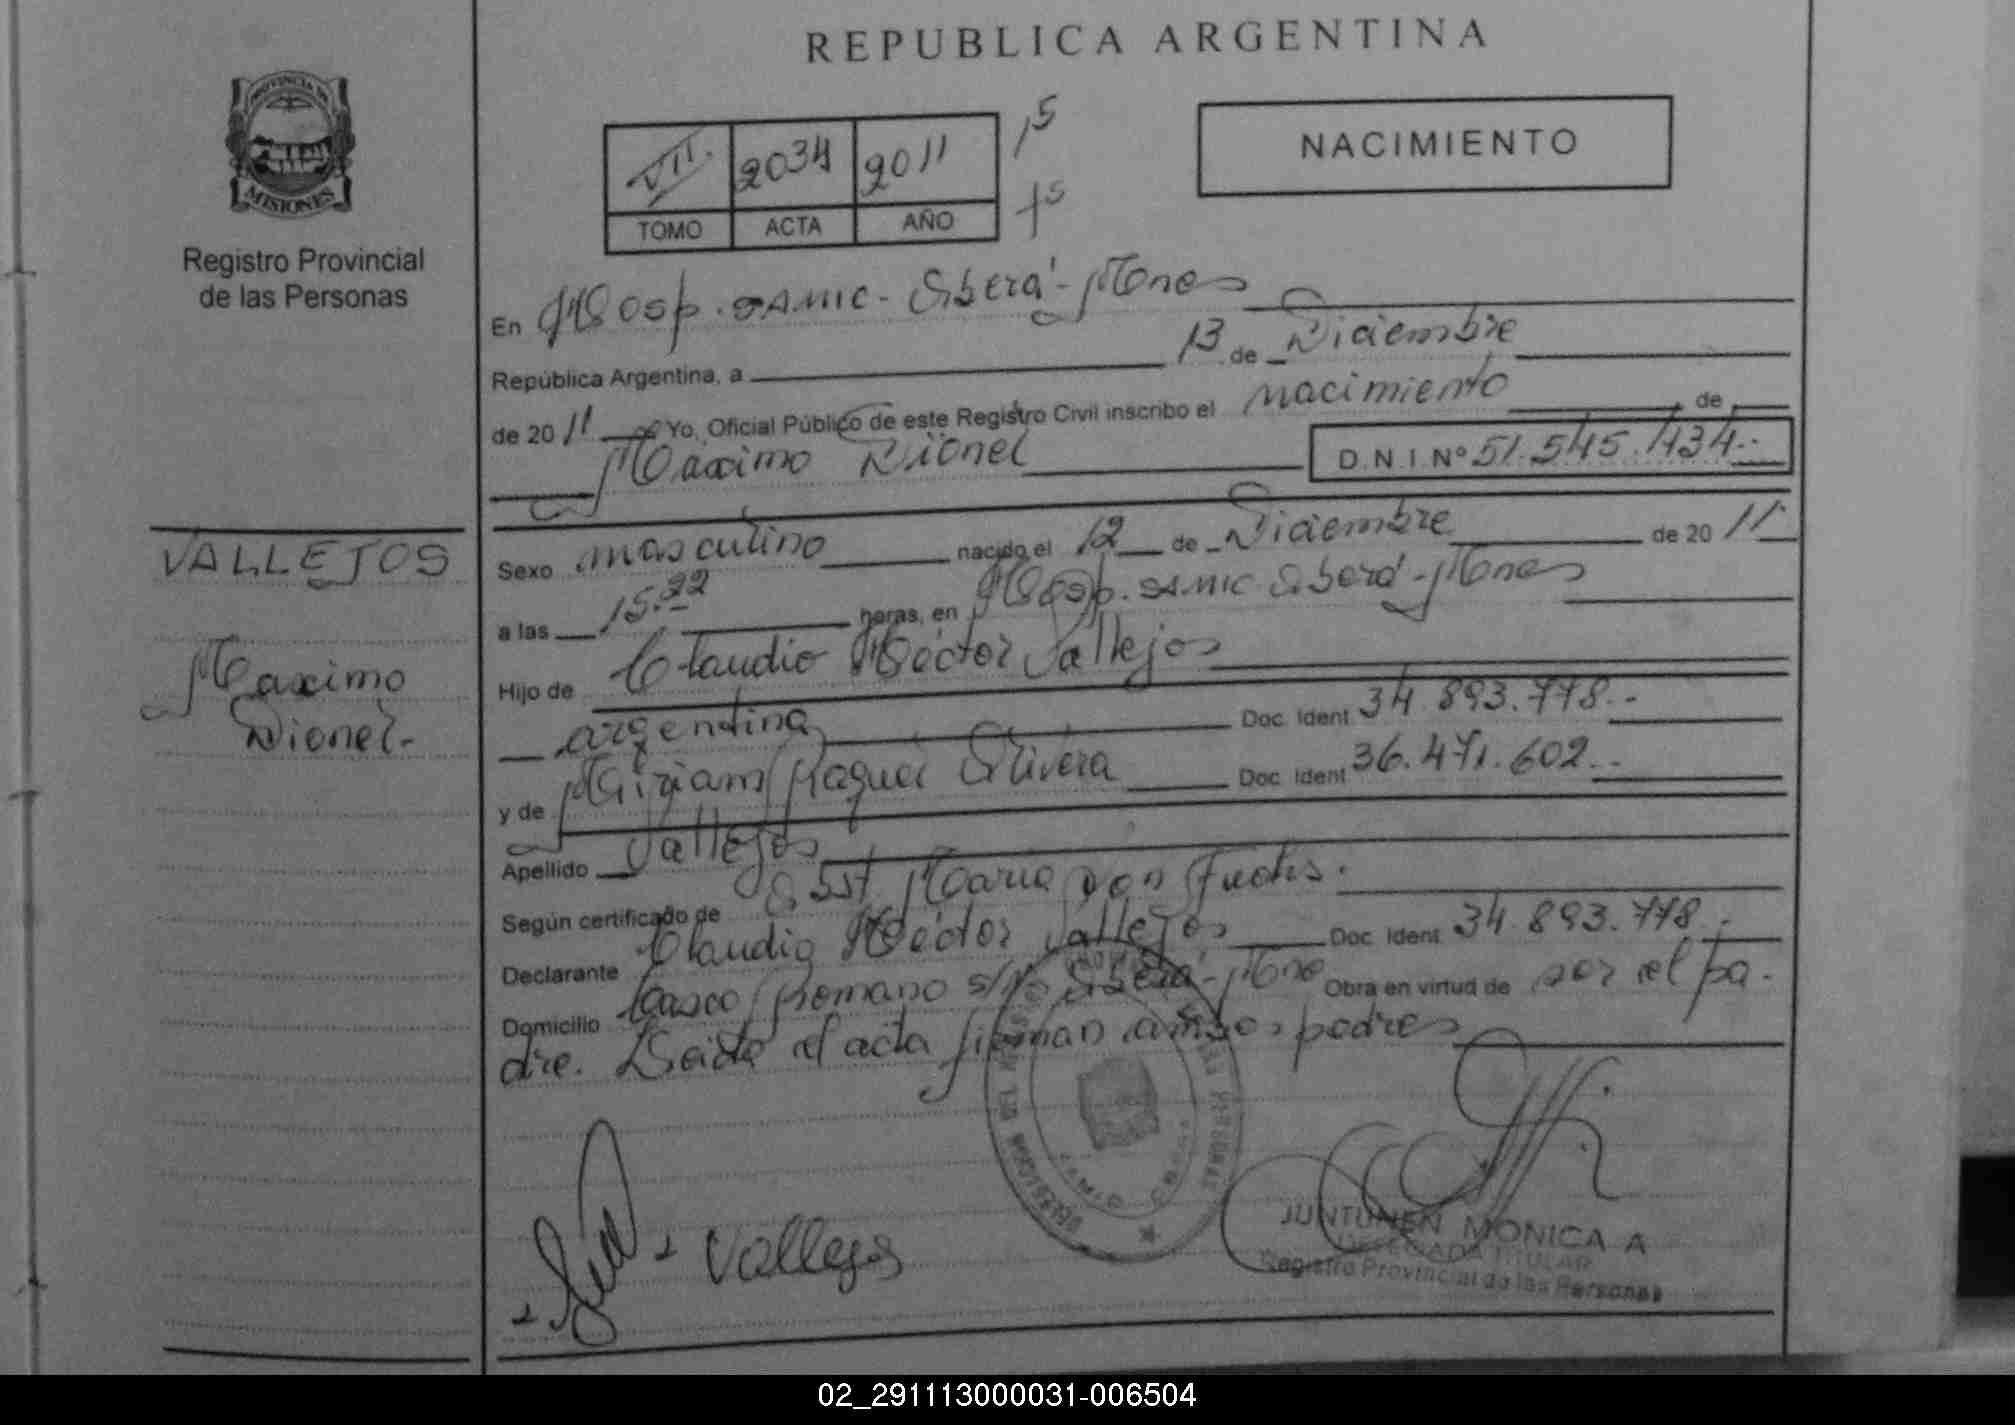 REPUBLICA ARGENTINA
PROVINCIA DE
MISIONES
Registro Provincial
de las Personas
VIII 2034 2011
TOMO ACTA AÑO
NACIMIENTO
En Hosp. SAMIC - Oberá - Mnes
República Argentina, a 13 de Diciembre
de 2011 Yo, Oficial Público de este Registro Civil inscribo el nacimiento de
Maximo Lionel
D.N.I. Nº 51.545.434.-
VALLEJOS
Maximo
Lionel.-
Sexo masculino nacido el 12 de Diciembre de 2011
a las 15.22 horas, en Hosp. SAMIC Oberá - Mnes
Hijo de Claudio Héctor Vallejos
argentina Doc. Ident. 34.893.778.-
y de Miriam Raquel Olivera Doc. Ident. 36.471.602.-
Apellido Vallejos
Según certificado de Obst. Maria
Declarante Claudio Héctor Vallejos Doc. Ident. 34.893.778.-
Domicilio Casco Romano s/n Oberá - Mnes Obra en virtud de ser el pa-
dre. Leída el acta firman ambos padres
Vallejos
JUNTUNEN MONICA A
DELEGADA TITULAR
Registro Provincial de las Personas
02_291113000031-006504